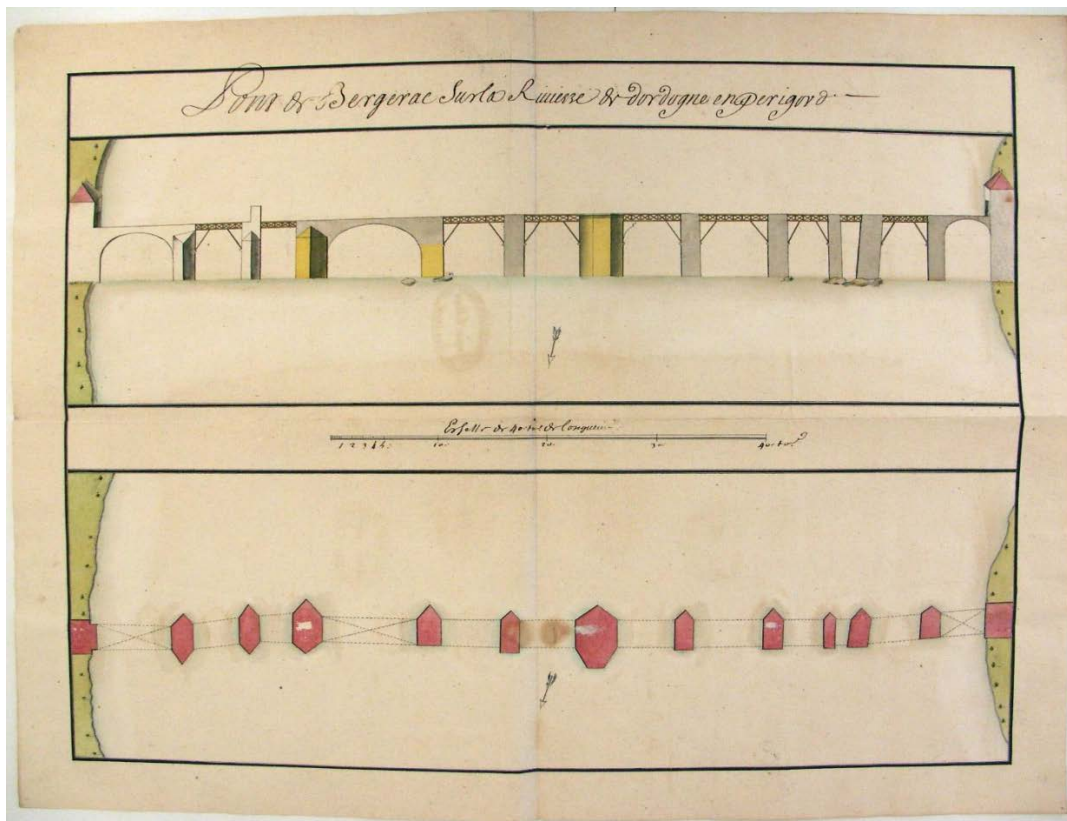 Pont de Bergerac Sur la Riviere de dordogne en perigord
Eschelle de 40 toi de Longueur
1 2 3 4 5 10 20 30 40 toi